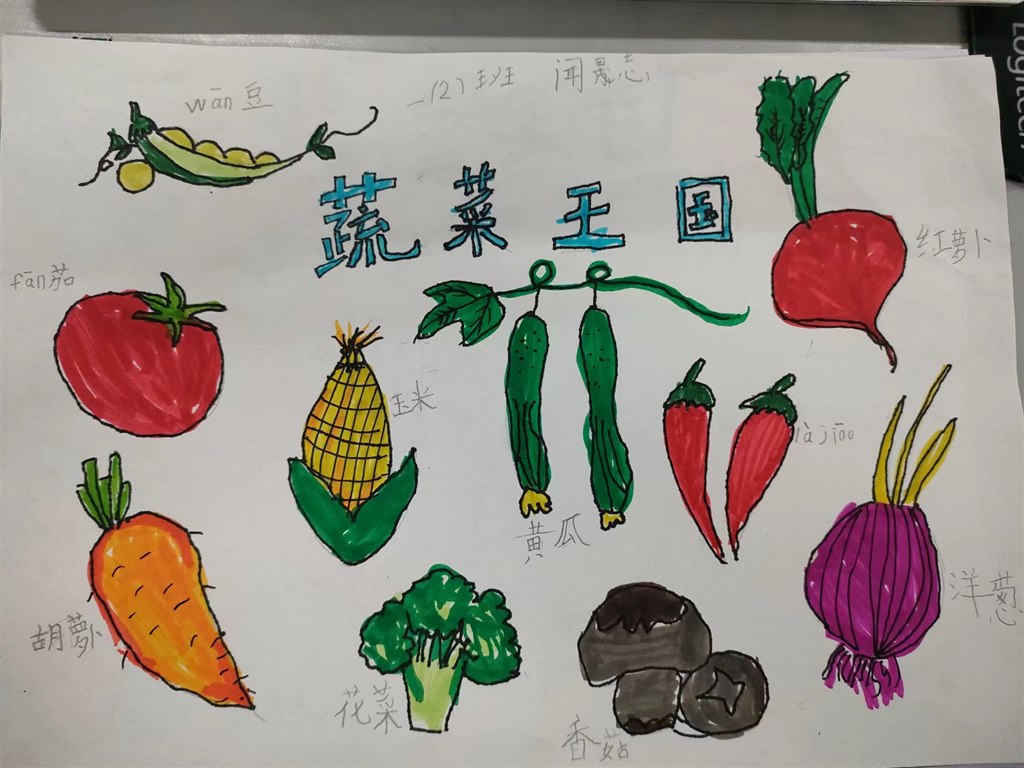 一(2)班 闻晨志
wān豆
蔬菜王国
红萝卜
fān茄
玉米
là jiāo
黄瓜
洋葱
胡萝卜
花菜
香菇
Logitech